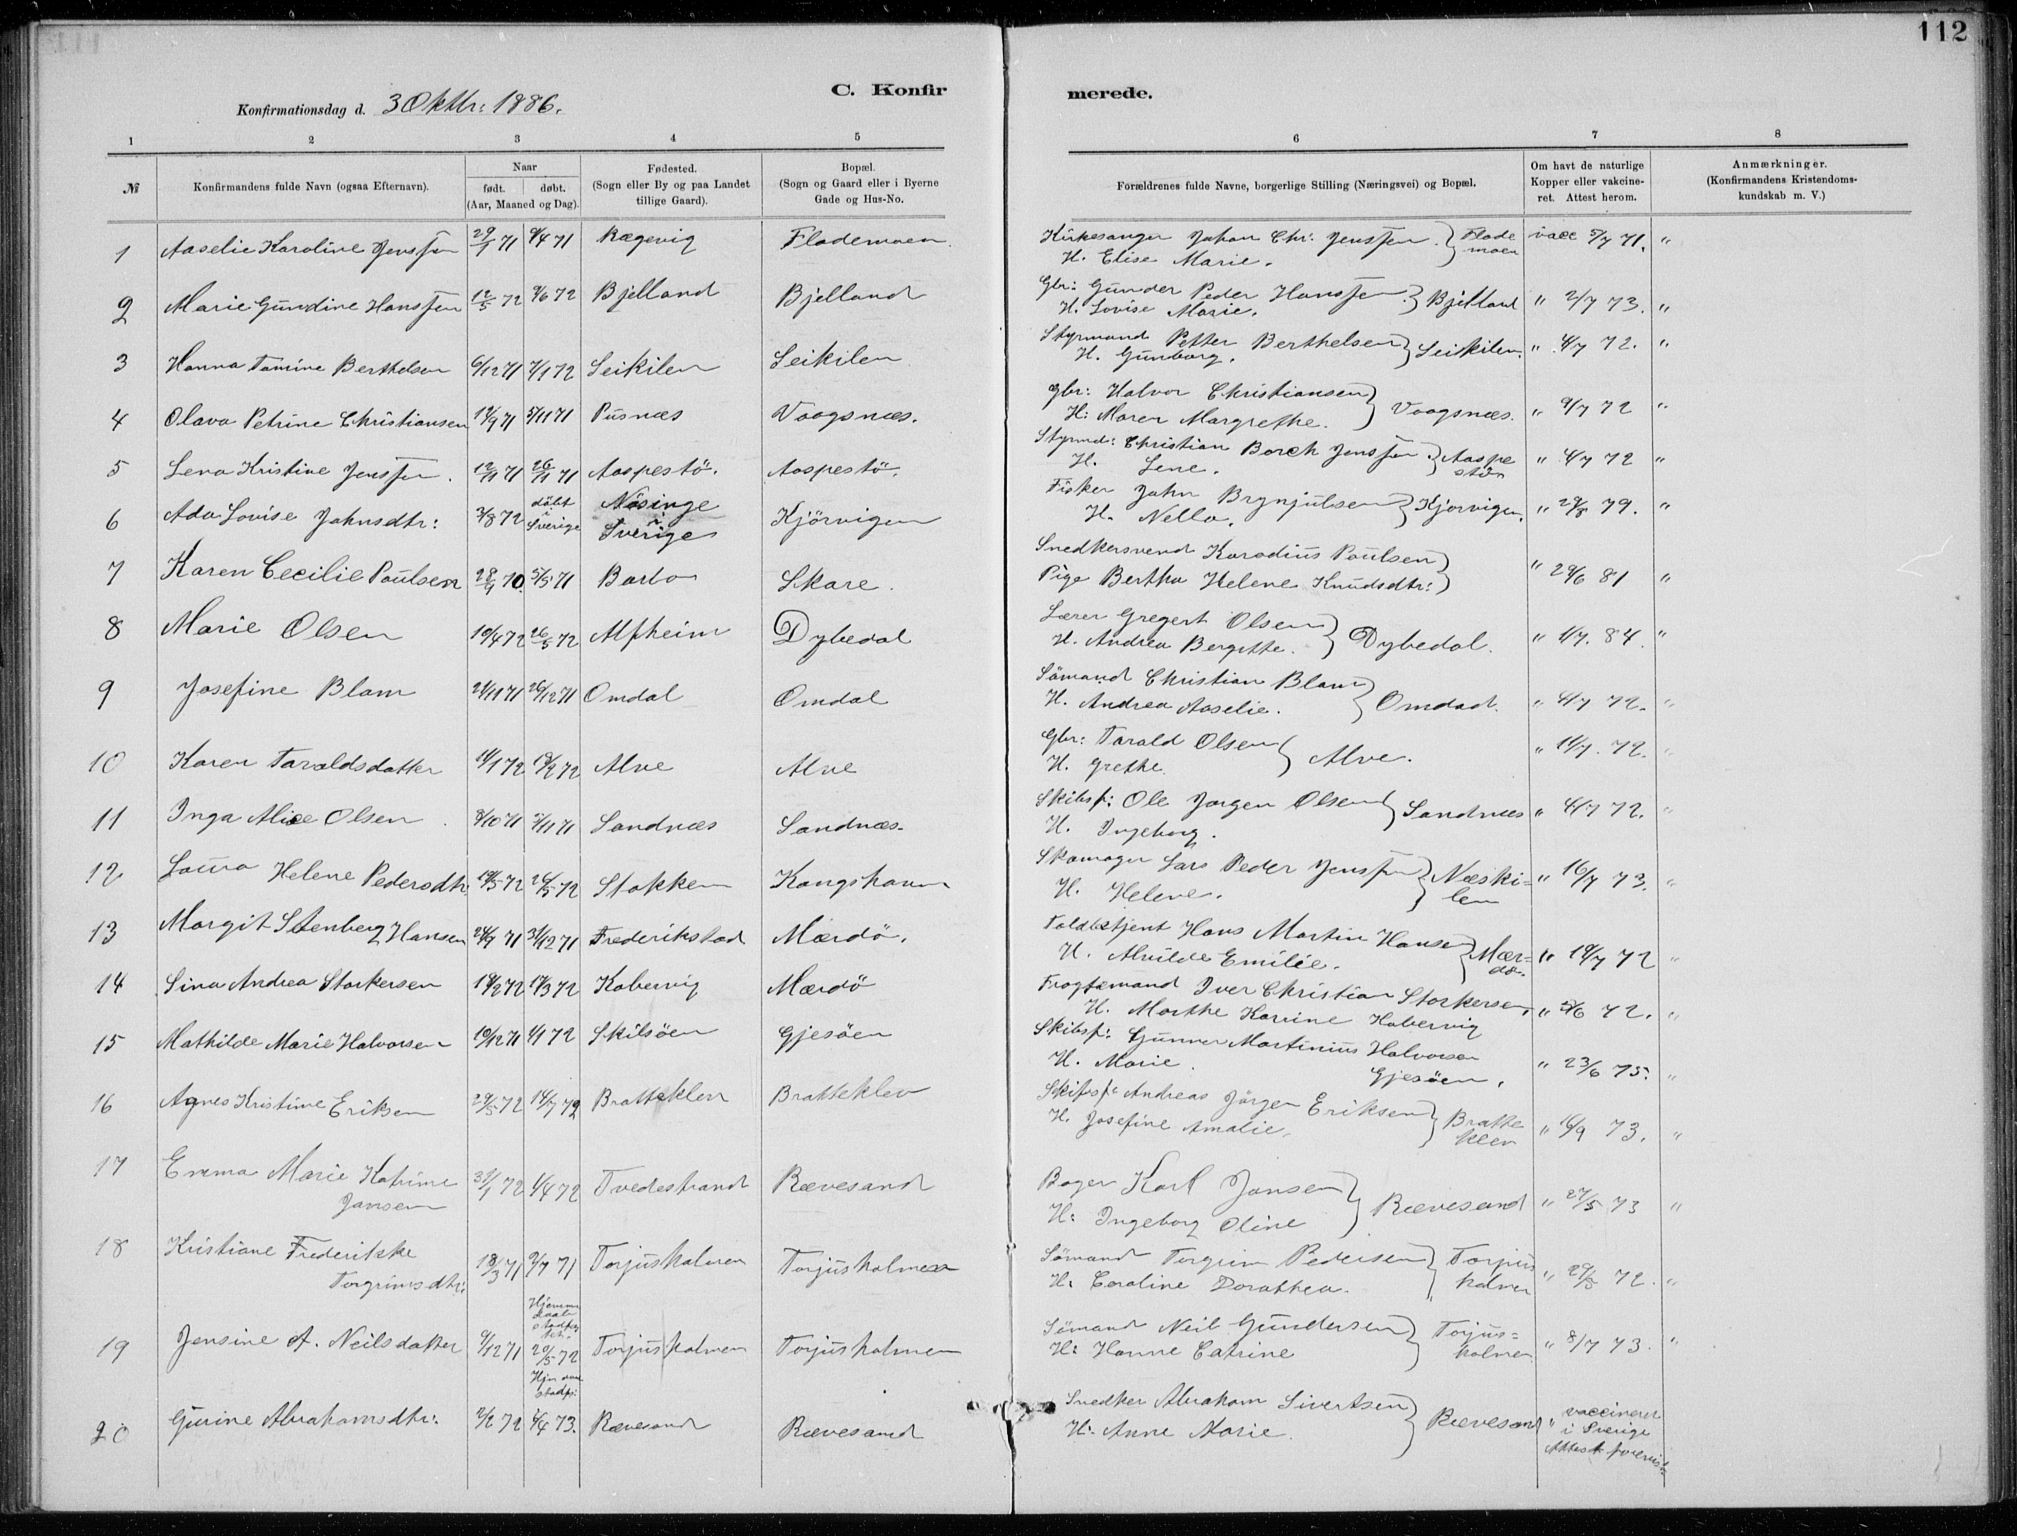 112
C. Konfirmerede.
Konfirmationsdag d. 3 Oktbr: 1886.
1 2 3 4 5 6 7 8
№
Konfirmandens fulde Navn (ogsaa Efternavn).
Naar
født. døbt.
(Aar, Maaned og Dag).
Fødested.
(Sogn eller By og paa Landet
tillige Gaard).
Bopæl.
(Sogn og Gaard eller i Byerne
Gade og Hus-No.
Forældrenes fulde Navne, borgerlige Stilling (Næringsvei) og Bopæl.
Om havt de naturlige
Kopper eller vakcine-
ret. Attest herom.
Anmærkninger.
(Konfirmandens Kristendoms-
kundskab m. V.)
1 Aaselie Karoline Jenssen 29/1 71 9/4 71 Rægevig Flademoen Kirkesanger Johan Chr: Jenssen } Flade vacc 5/7 71. "
H. Elise Marie. moen
2 Marie Gundine Hanssen 12/5 72 9/6 72 Bjelland Bjelland Gbr: Gunder Peder Hanssen } Bjelland " 2/7 73. "
H. Lovise Marie.
3 Hanna Tomine Berthelsen 6/12 71 7/1 72 Seikilen Seikilen Styrmand Petter Berthelsen } Seikilen. " 4/7 72. "
H. Gunborg.
4 Olava Petrine Christiansen 19/9 71 5/11 71 Pusnæs Vaagsnæs. gbr: Halvor Christiansen } Vaagsnæs. " 9/7 72 "
H: Maren Margrethe.
5 Lena Kristine Jenssen. 12/11 71 26/11 71 Aaspestö. Aaspestö. Styrmd: Christian Borch Jenssen. } Aaspe " 4/7 72 "
H. Lene. stö
6 Ada Lovise Johnsdtr: 3/8 72 döbt i Sverige Nösinge i Sverige Kjörvigen Fisker John Brynjulsen } Kjörvigen. " 29/8 79. "
H. Nella.
7 Karen Cecilie Poulsen 28/9 70. 5/5 71 Barbo Skare. Snedkersvend Karodius Poulsen } " 29/6 81 "
Pige Bertha Helene Knudsdtr:
8 Marie Olsen 10/4 72 26/5 72 Alfheim Dybedal Lærer Gregert Olsen } Dybedal. " 1/7. 84. "
H. Andrea Bergitte.
9 Josefine Blam 21/11 71 26/12 71 Omdal Omdal Sömand Christian Blam } Omdal. " 4/7 72. "
H. Andrea Aaselie.
10 Karen Taraldsdatter 11/1 72 18/2 72 Alve Alve Gbr: Tarald Olsen } Alve. " 11/7. 72. "
H. Grethe.
11 Inga Alice Olsen 8/10 71 5/11 71 Sandnæs Sandnæs. Skibsf: Ole Jörgen Olsen } Sandnæs " 4/7 72. "
H. Ingeborg.
12 Laura Helene Pedersdtr. 19/3 72 26/5 72 Stokken Kongshavn Skomager Lars Peder Jenssen } Næski= " 16/7 73. "
H. Helene. len
13 Margit Stenberg Hansen 24/9 71 31/12 71 Frederikstad Mærdö. Toldbetjent Hans Martin Hansen } Mær= " 19/7 72 "
H. Alvilde Emilie. dö.
14 Sina Andrea Storkersen 19/2 72 17/3 72 Kobervig Mærdö Fragtemand Iver Christian Storkersen, " 5/6 72. "
H. Marthe Karine Habervig
15 Mathilde Marie Halvorsen 10/12 71 1/1 72 Skilsöen Gjesöen Skibsf: Gunner Martinius Halvorsen
H. Marie. Gjesöen. " 23/6 75. "
16 Agnes Kristine Eriksen 29/5 72 14/7 72 Bratteklev Bratteklev Skibsf: Andreas Jörgen Eriksen } Bratte " 16/9 73. "
H. Josefine Amalie. klev
17 Emma Marie Katrine 31/1 72 1/4 72 Tvedestrand Rævesand Bager Karl Jansen } Rævesand " 27/5 73 "
Jansen H: Ingeborg Oline
18 Kristiane Frederikke 18/3 71 9/7 71 Torjusholmen Torjusholmen Sömand Torgrim Pedersen } Torjus " 29/8 72. "
Torgrimsdtr: H: Caroline Dorothea. holmen
19 Jensine A. Neilsdatter 9/12 71 29/5 72 Torjusholmen Torjusholmen Sömand Neil Gundersen } Torjus= " 8/7 73. "
H: Hanne Catrine holmen
20 Gurine Abrahamsdtr: 2/2 72 4/4 73. Rævesand Rævesand Snedker Abraham Sivertsen } Rævesand " vaccineret
H: Anne Marie. i Sverige
Attest forevist